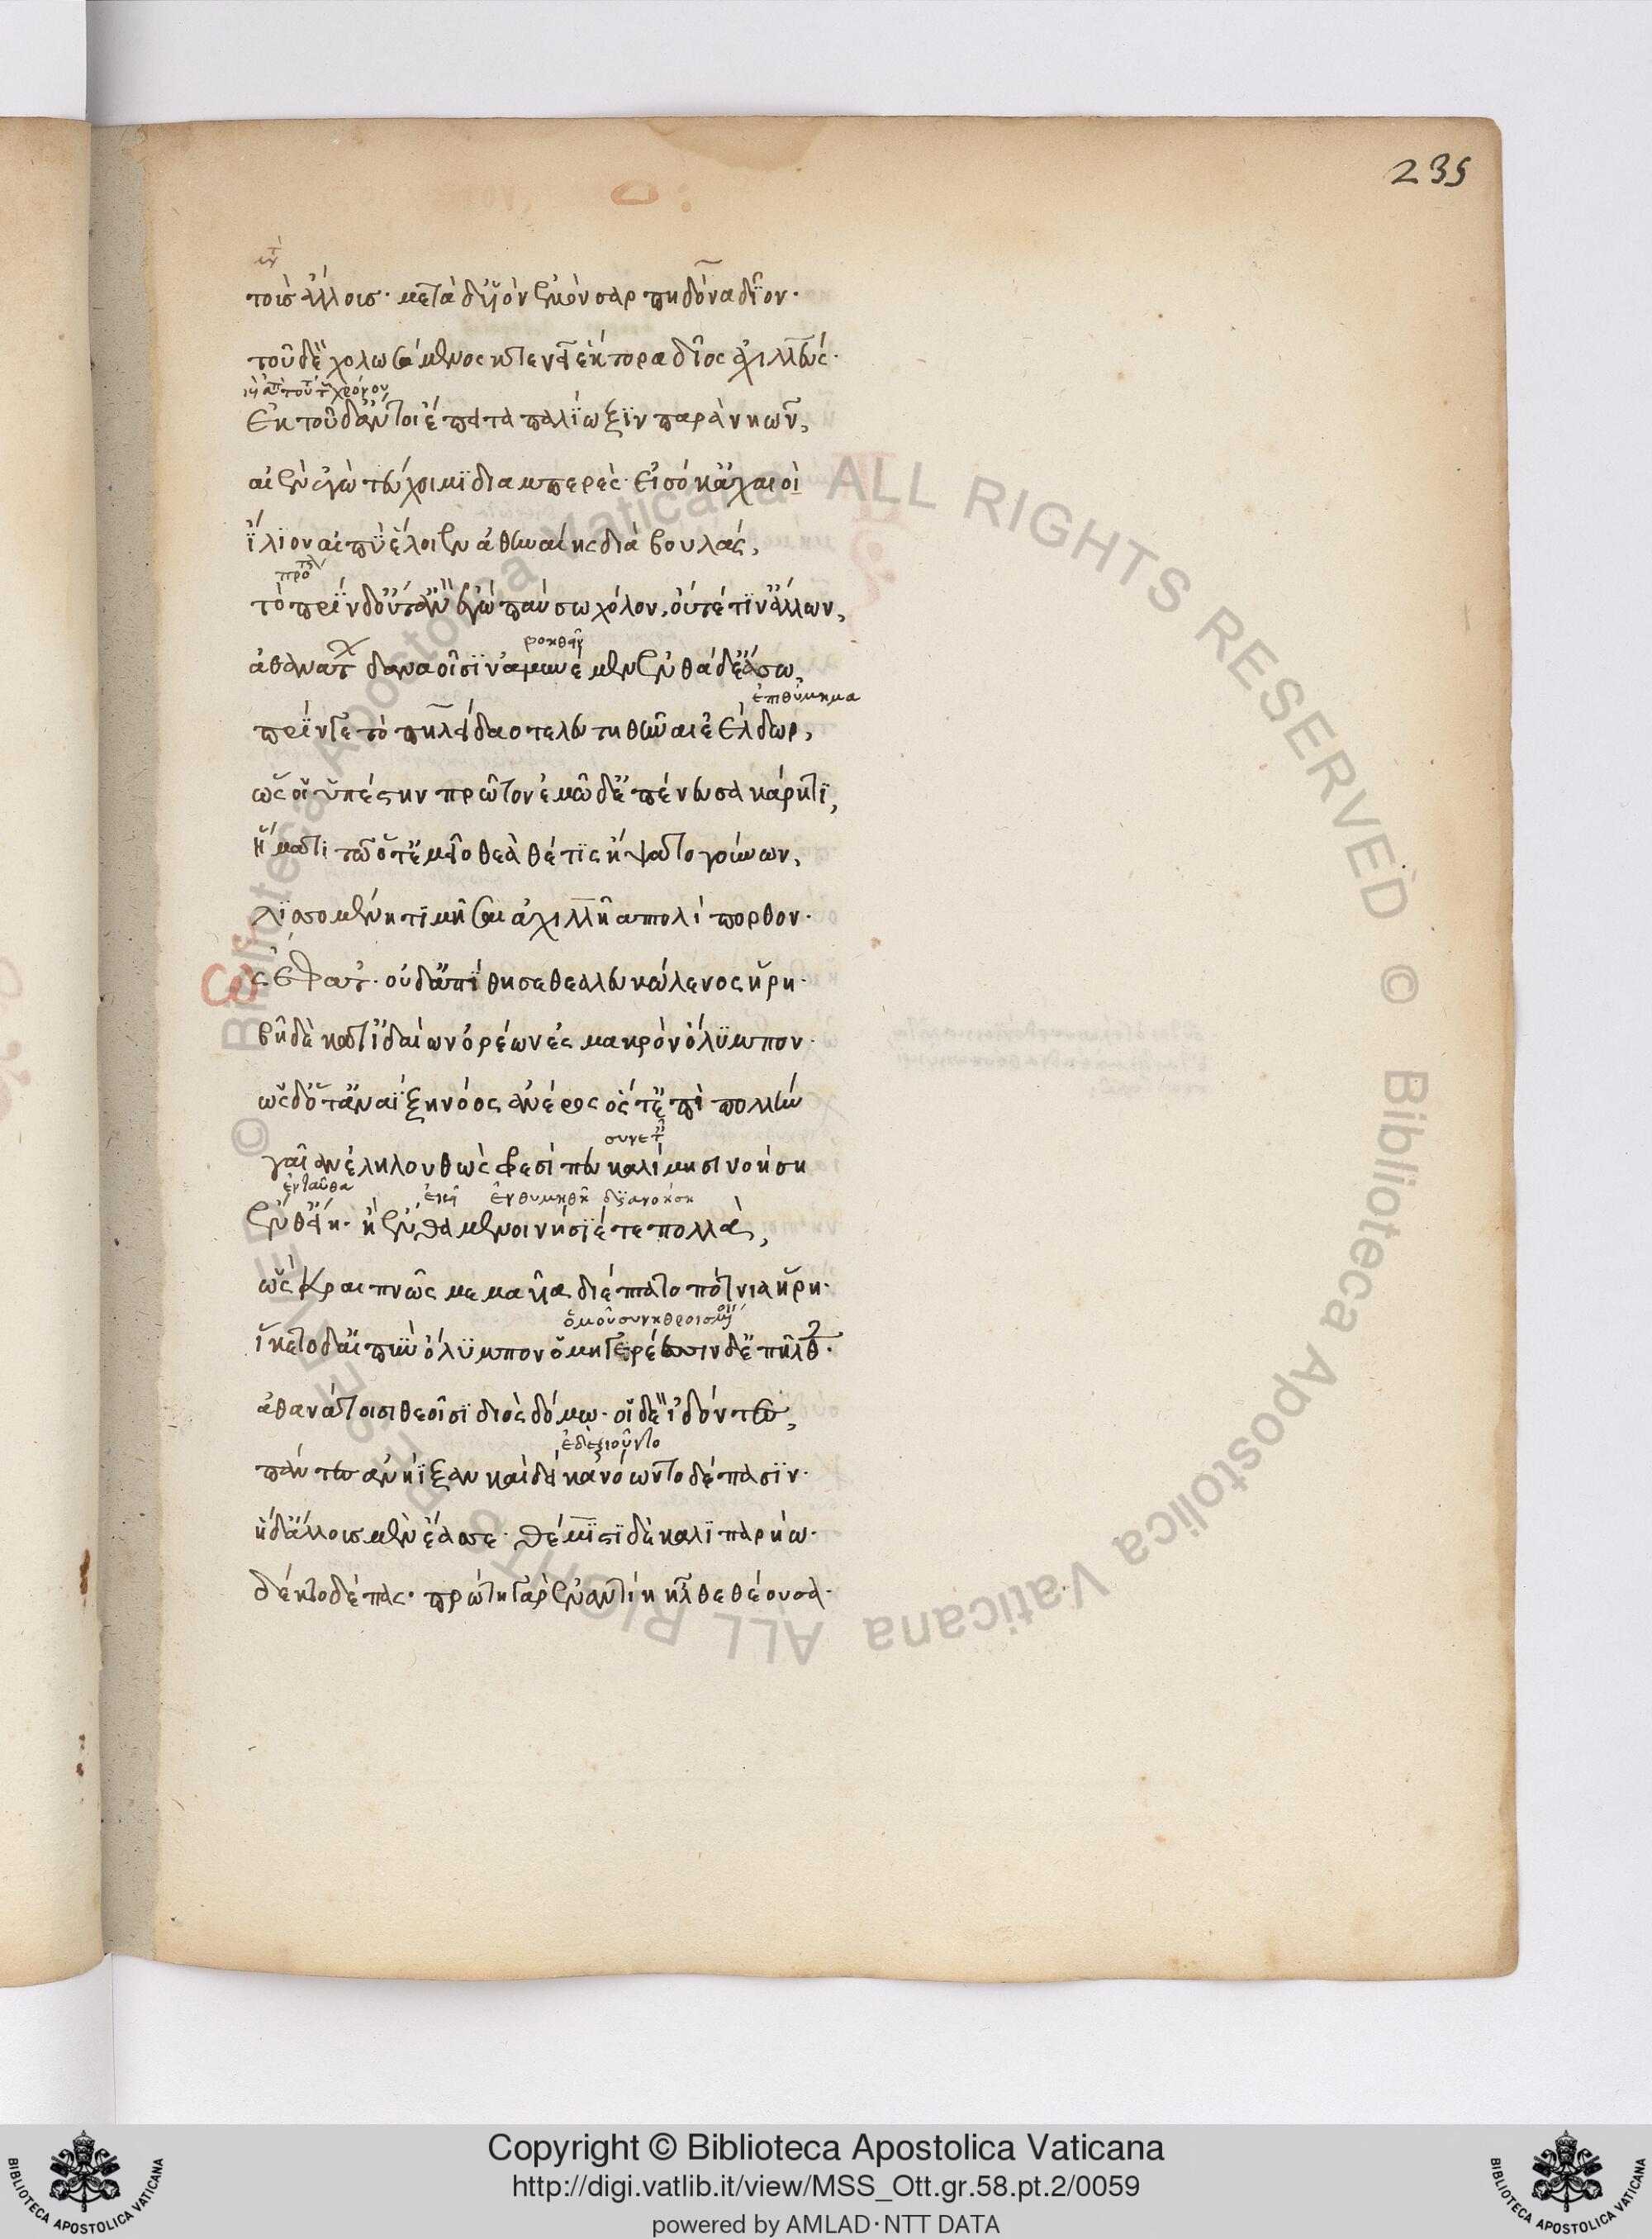 235
τοὺς ἄλλους· μετὰ δ' υἱὸν ἐμὸν σαρπηδόνα δῖον·
τοῦ δὲ χολωσάμενος κτενεῖ ἕκτορα δῖος ἀχιλλεύς·
ἐκ τοῦ δ' ἄν τοι ἔπειτα παλίωξιν παρὰ νηῶν,
αἰὲν ἐγὼ τεύχοιμι διαμπερές· εἰσόκ' ἀχαιοὶ
ἴλιον αἰπὺ ἕλοιεν ἀθηναίης διὰ βουλάς,
τὸ πρὶν δ' οὔτ' ἂρ ἐγὼ παύσω χόλον, οὔτέ τιν' ἄλλων,
ἀθανάτων δαναοῖσιν ἀμυνέμεν ἐνθάδ' ἐάσω,
ἐπιθύμημα
πρίν γε τὸ πηλείδαο τελευτηθῆναι ἐέλδωρ,
ὥς οἱ ὑπέστην πρῶτον ἐμῷ δ' ἐπένευσα κάρητι,
ἤματι τῷ ὅτ' ἐμεῖο θεὰ θέτις ἥψατο γούνων,
λισσομένη τιμῆσαι ἀχιλλῆα πτολίπορθον·
ὣς ἔφατ'· οὐδ' ἀπίθησε θεὰ λευκώλενος ἥρη·
βῆ δὲ κατ' ἰδαίων ὀρέων ἐς μακρὸν ὄλυμπον·
ὡς δ' ὅτ' ἂν ἀΐξῃ νόος ἀνέρος ὅς τ' ἐπὶ πολλὴν
γαῖαν ἐληλουθὼς φρεσὶ πευκαλίμῃσι νοήσῃ
ἐνταῦθα ἐκεῖ ἐνθυμηθῇ διανοήσῃ
ἔνθ' εἴην· ἢ ἔνθα μενοινήσειέ τε πολλὰ,
ὣς κραιπνῶς μεμαυῖα διέπτατο πότνια ἥρη·
ἵκετο δ' αἰπὺν ὄλυμπον ὁμηγερέεσσιν δ' ἐπῆλθεν·
ἀθανάτοισι θεοῖσι διὸς δόμῳ· οἳ δὲ ἰδόντες,
ἐδεξιοῦντο
πάντες ἀνήϊξαν καὶ δεικανόωντο δέπασιν·
ἡ δ' ἄλλους μὲν ἔασε· θέμιστι δὲ καλλιπαρῄῳ·
δέκτο δέπας· πρώτη γὰρ ἐναντίη ἦλθε θέουσα·
© Biblioteca Apostolica Vaticana ALL RIGHTS RESERVED © Biblioteca Apostolica Vaticana ALL RIGHTS RESERVED
Copyright © Biblioteca Apostolica Vaticana
http://digi.vatlib.it/view/MSS_Ott.gr.58.pt.2/0059
powered by AMLAD·NTT DATA
BIBLIOTECA APOSTOLICA VATICANA
BIBLIOTECA APOSTOLICA VATICANA